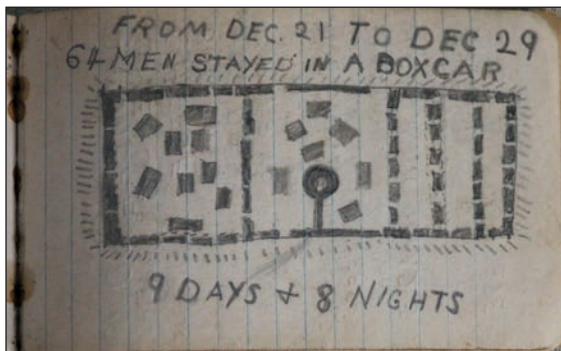 FROM DEC. 21 TO DEC 29
64 MEN STAYED IN A BOXCAR
9 DAYS + 8 NIGHTS